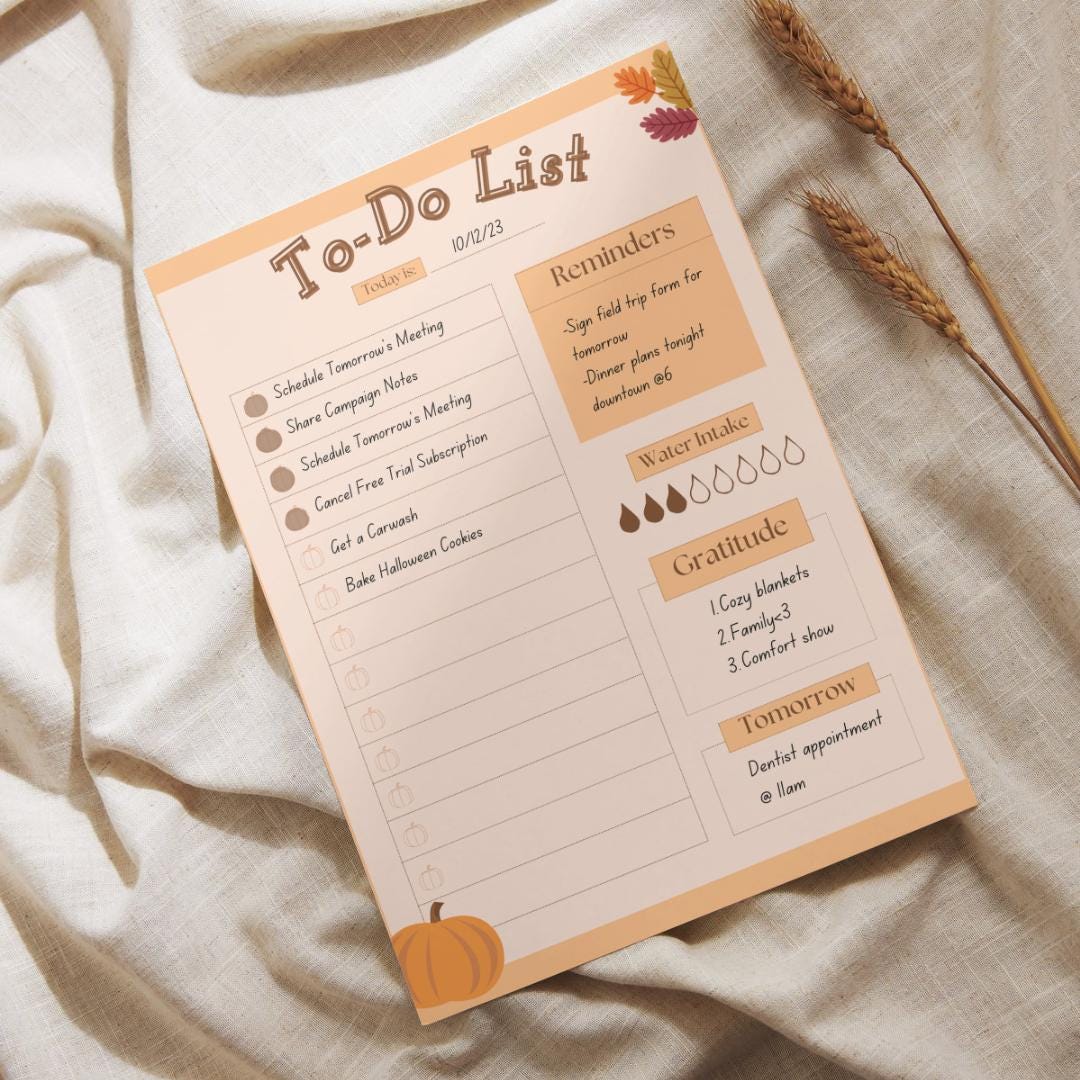 To-Do List
Today is:
10/12/23
Schedule Tomorrow's Meeting
Share Campaign Notes
Schedule Tomorrow's Meeting
Cancel Free Trial Subscription
Get a Carwash
Bake Halloween Cookies
Reminders
-Sign field trip form for
tomorrow
-Dinner plans tonight
downtown @6
Water Intake
Gratitude
1.Cozy blankets
2.Family<3
3.Comfort show
Tomorrow
Dentist appointment
@ 11am